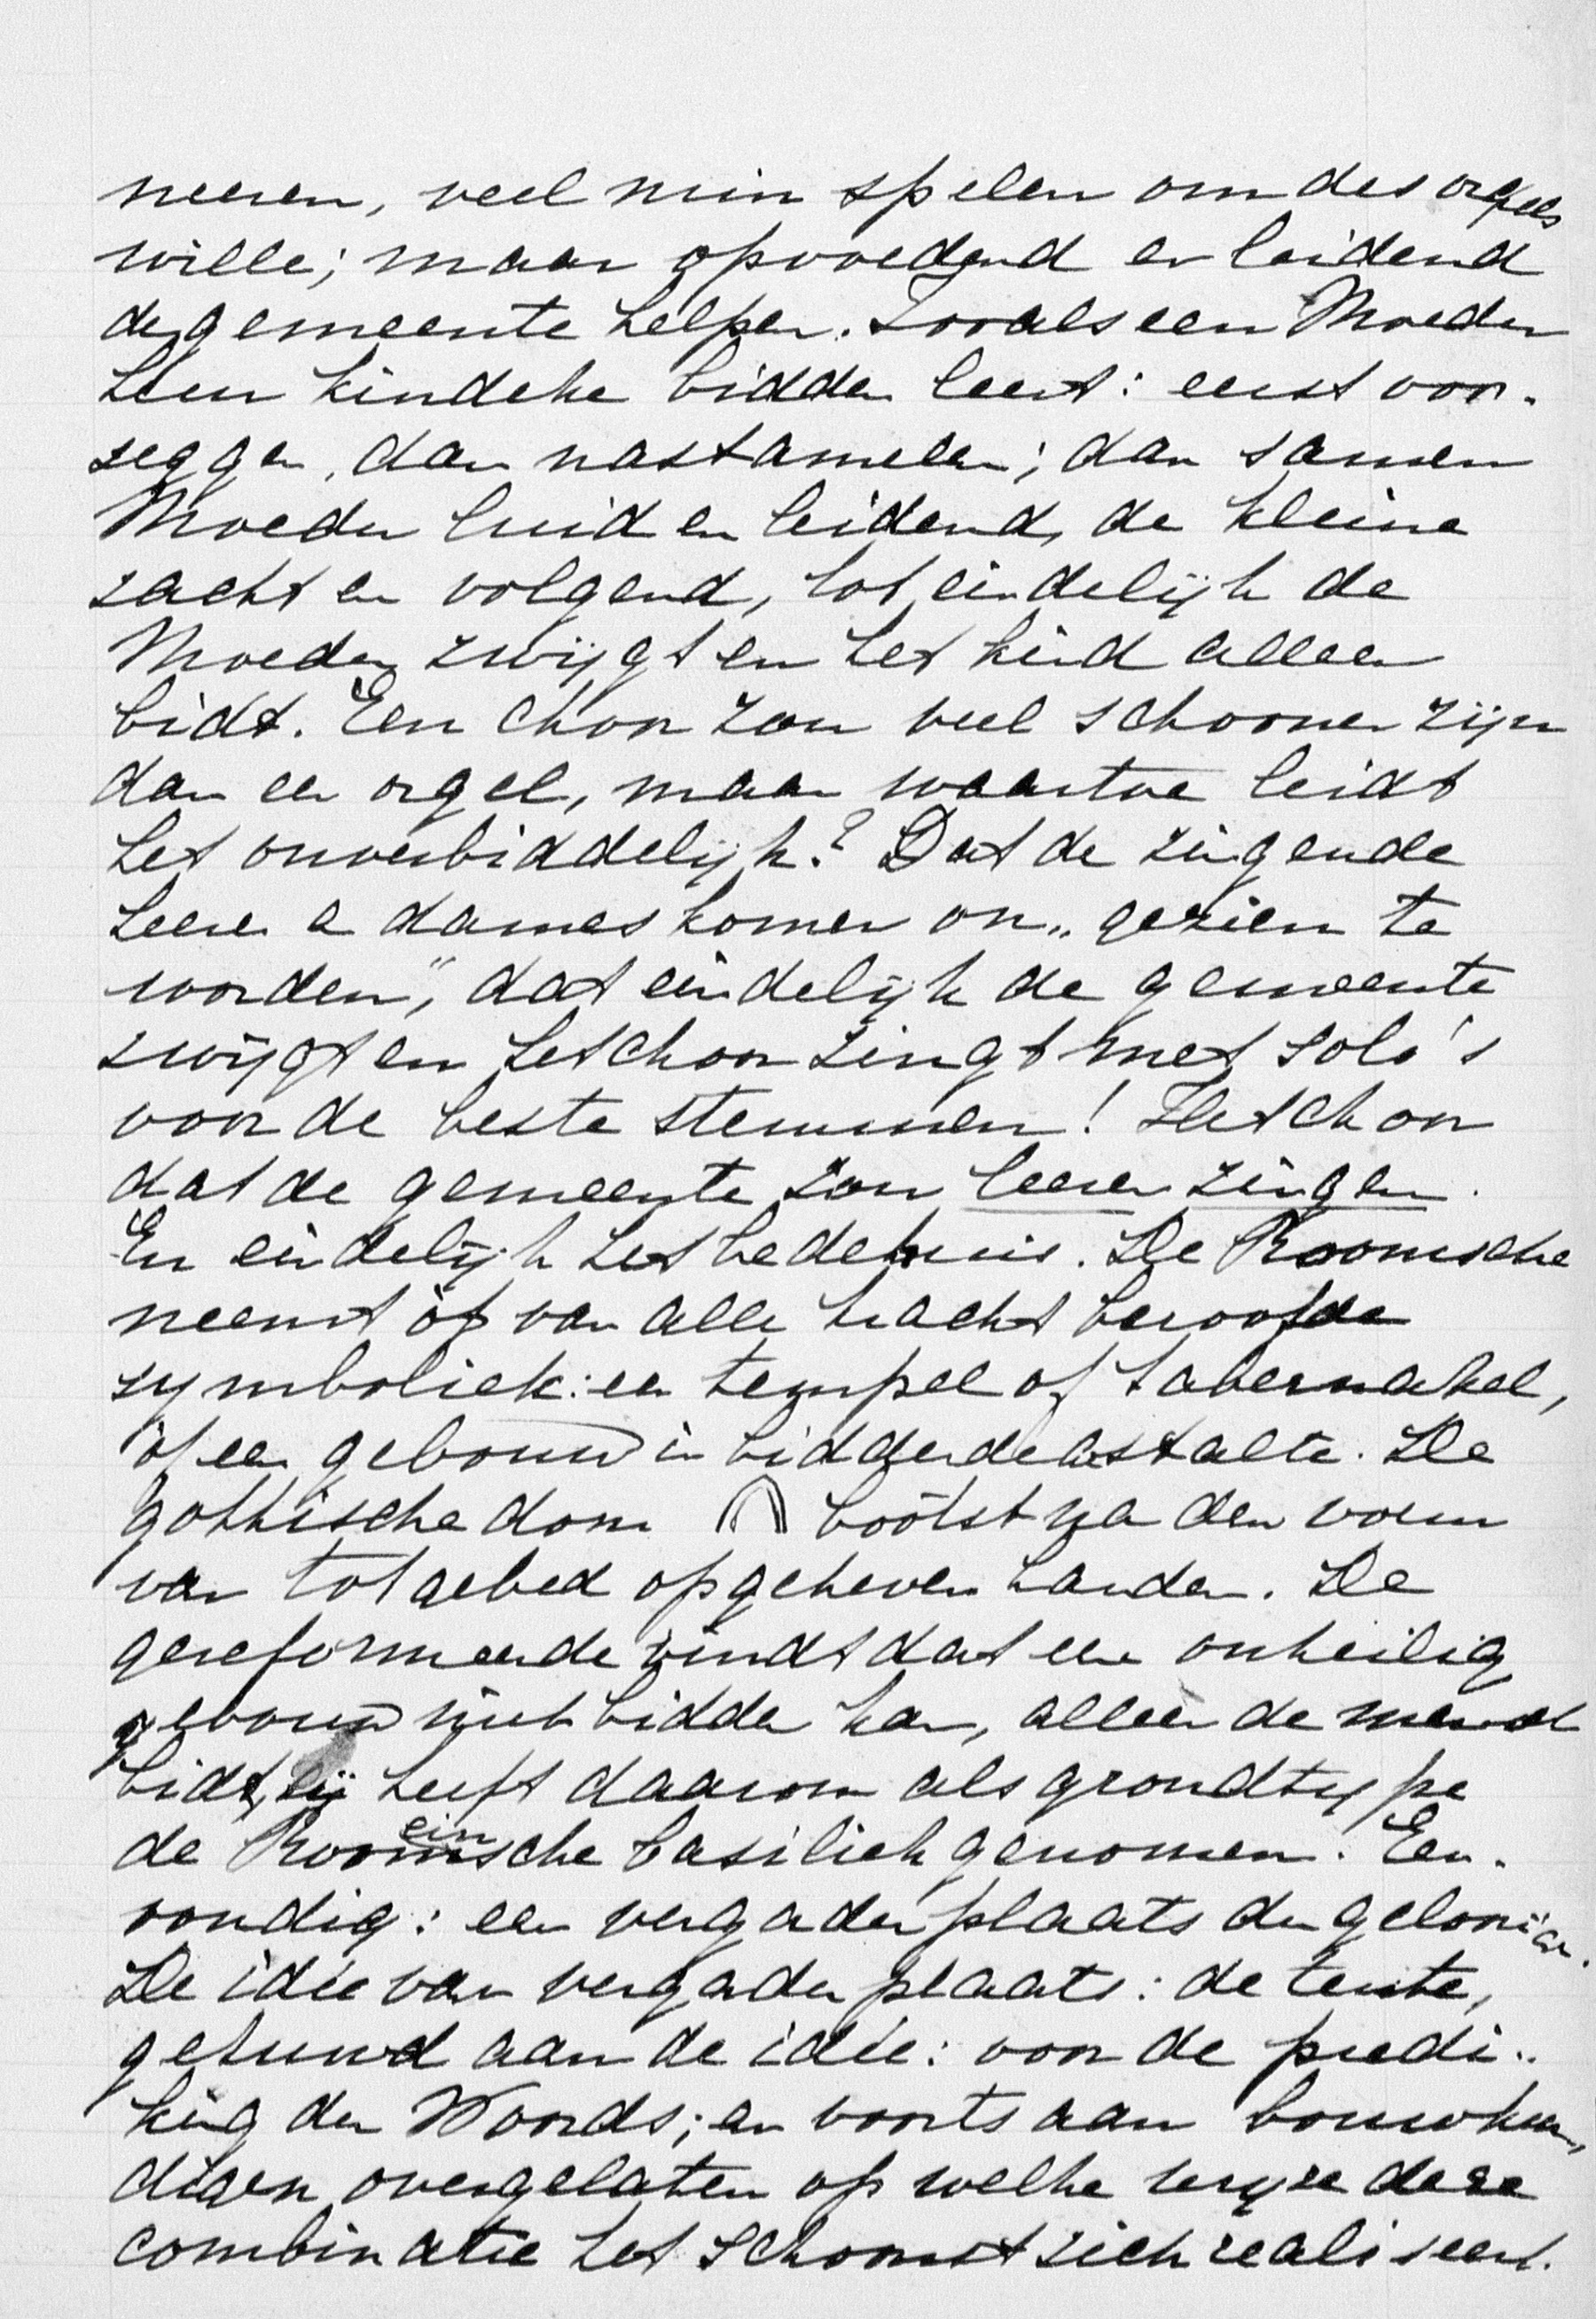 neeren, veel min spelen om des orgels
wille; maar opvoedend en leidend
de gemeente helpen. Zooals een Moeder
heur kindeke bidden leert: eerst voor-
zeggen, dan nastamelen; dan samen
Moeder luid en leidend, de kleine
zacht en volgend, tot eindelijk de
Moeder zwijgt en het kind alleen
bidt. Een choor zou veel schooner zijn
dan een orgel, maar waartoe leidt
het onverbiddelijk? Dat de zingende
heeren en dames komen om „gezien te
worden”, dat eindelijk de gemeente
zwijgt en het choor zingt met solo's
voor de beste stemmen! Het choor
dat de gemeente zou leeren zingen.
En eindelijk het bedehuis. De Roomsche
neemt òf van alle kracht beroofde
symboliek: een tempel of tabernakel,
òf een gebouw in biddende gestalte. De
gothische dom bootst na den vorm
van tot gebed opgeheven handen. De
gereformeerde vindt dat een onheilig
gebouw niet bidden kan, alleen de mensch
bidt, hij heeft daarom als grondtype
de Romeinsche basiliek genomen. Een-
voudig: een vergaderplaats der geloovigen.
De idée van vergaderplaats: de tente,
gehuwd aan de idée: voor de predi-
king des Woords; en voorts aan bouwkun-
digen overgelaten op welke wijze deze
combinatie het schoonst zich realiseert.